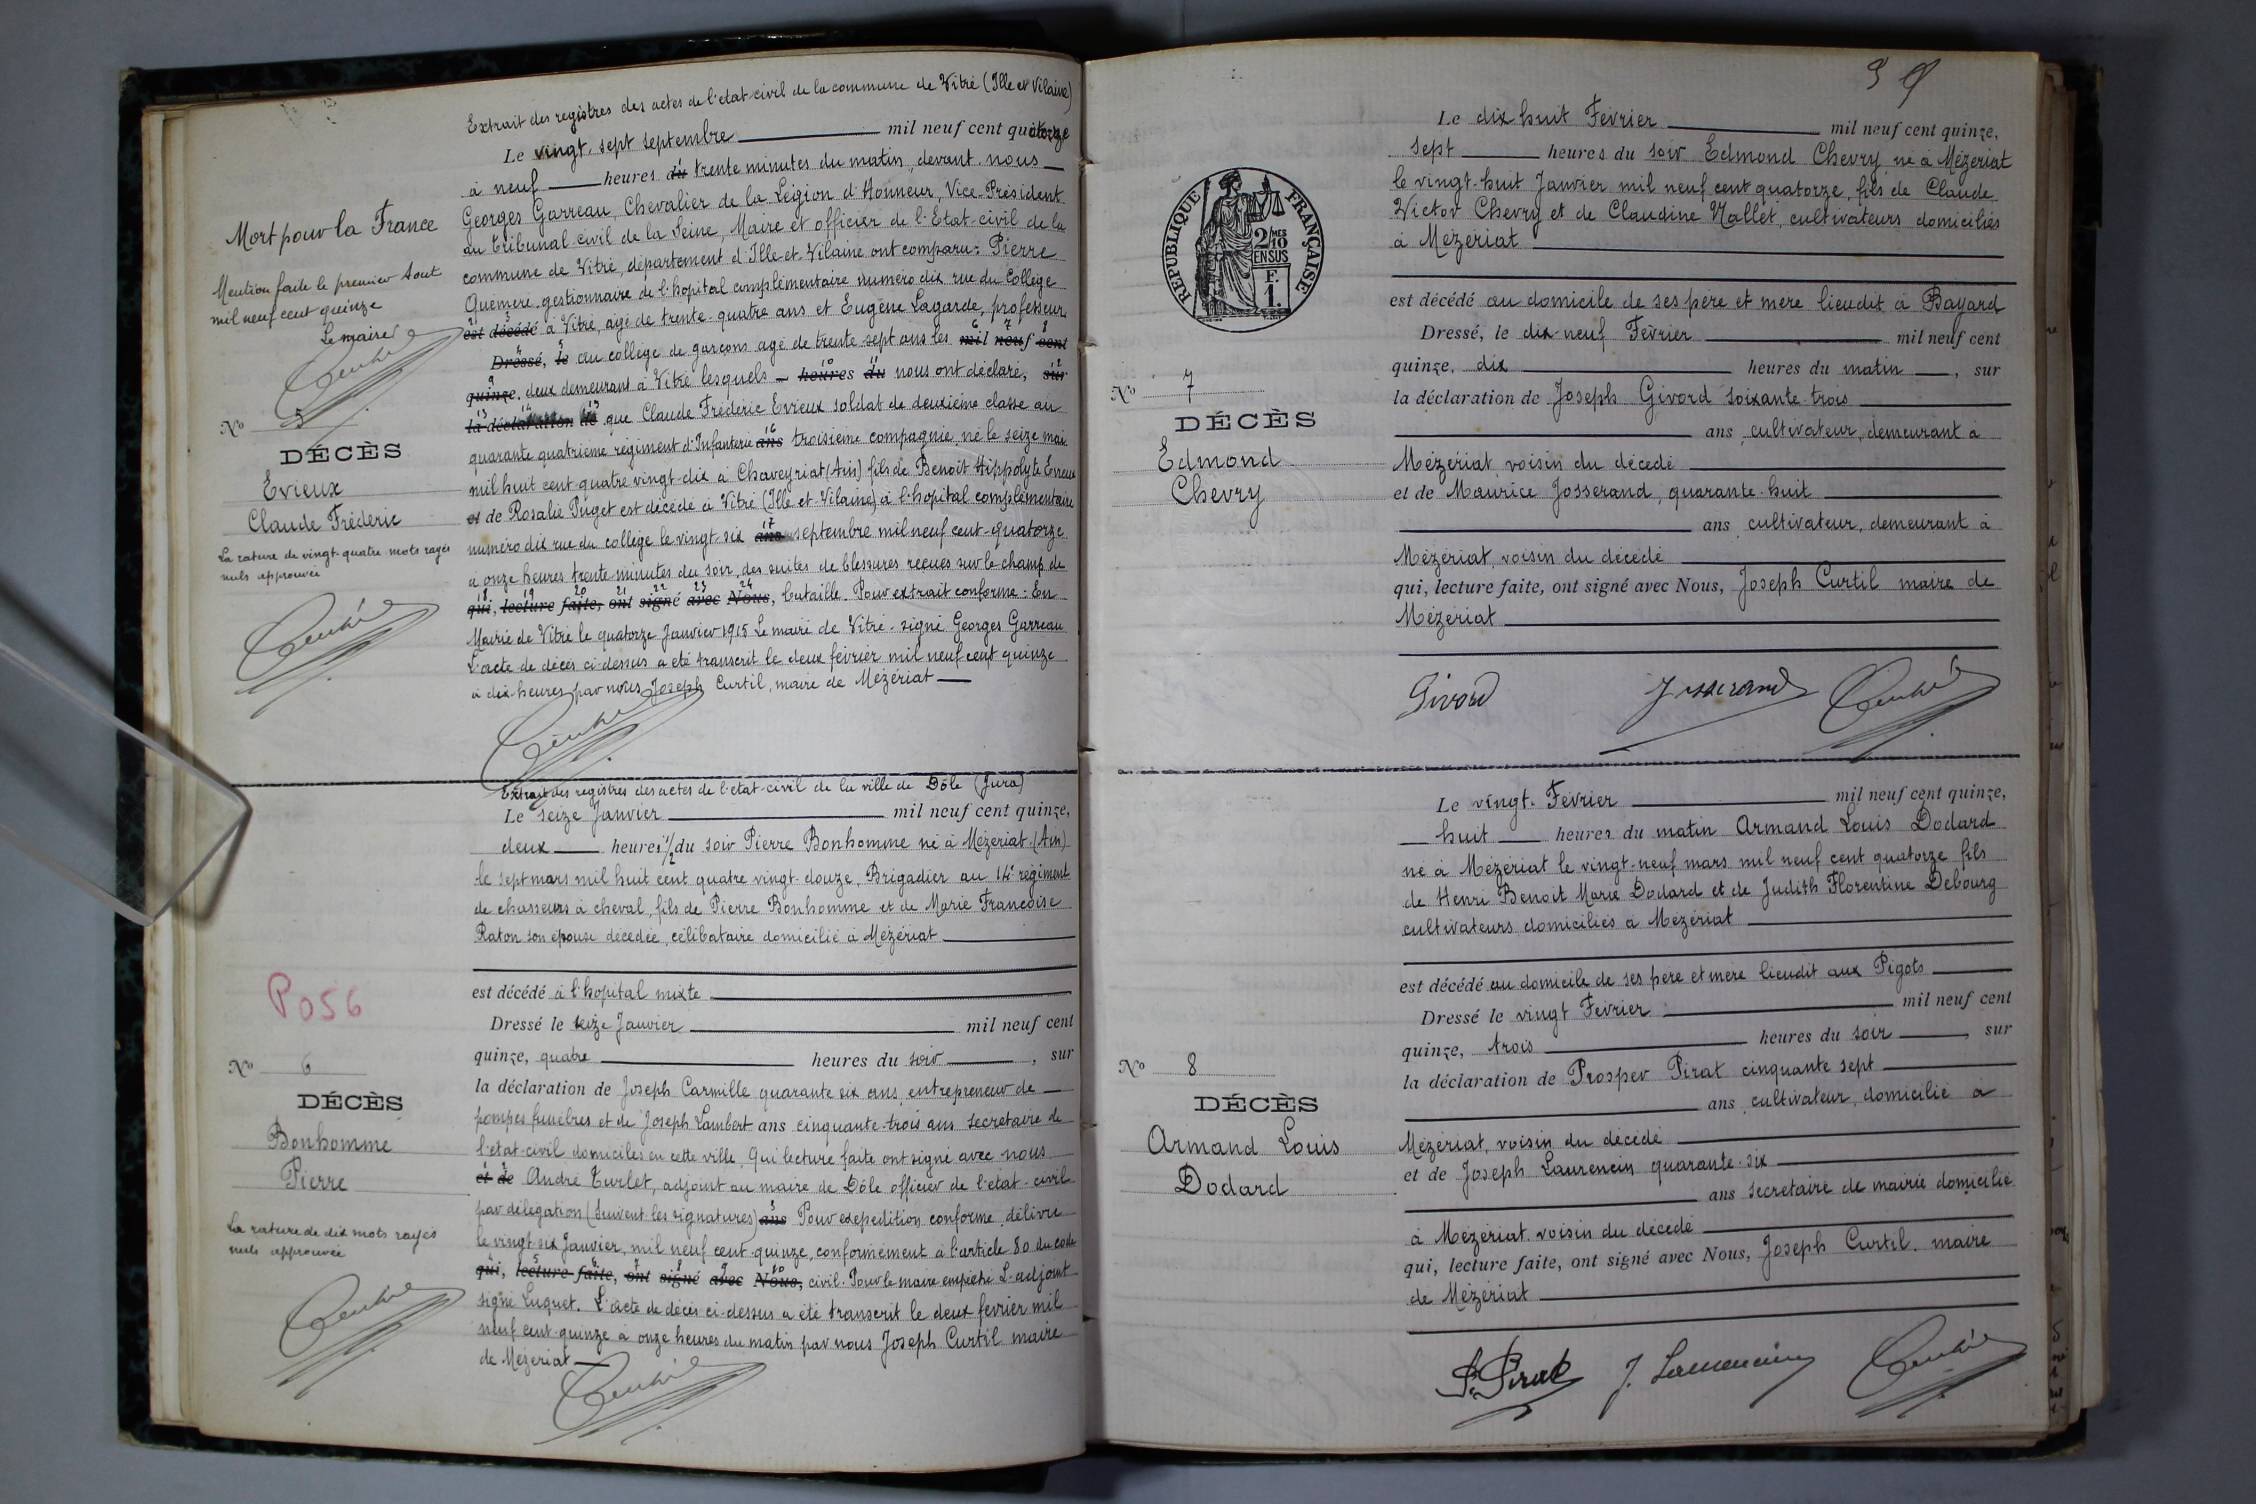 Extrait des registres des actes de l'état-civil de la commune de Vitré (Ille et Vilaine)
Le vingt-sept septembre mil neuf cent quatorze
à neuf heures du trente minutes du matin devant nous
Georges Garreau, Chevalier de la Légion d'Honneur, Vice-Président
au tribunal civil de la Seine, Maire et officier de l'Etat-civil de la
commune de Vitré, département d'Ille-et-Vilaine ont comparu: Pierre
Quémeré gestionnaire de l'hôpital complémentaire numéro dix rue du Collège
est décédé à Vitré, âgé de trente-quatre ans et Eugène Lagarde, professeur
Dressé, le au collège de garçons âgé de trente-sept ans les mil neuf cent
quinze, deux demeurant à Vitré lesquels heures du nous ont déclaré, sur
la déclaration de que Claude Frédéric Evieux soldat de deuxième classe au
quarante quatrième régiment d'Infanterie ans troisième compagnie, né le seize mai
mil huit cent quatre vingt-dix à Chaveyriat (Ain) fils de Benoît Hippolyte Evieux
et de Rosalie Puget est décédé à Vitré (Ille-et-Vilaine) à l'hôpital complémentaire
numéro dix rue du collège le vingt-six ans septembre mil neuf cent-quatorze
à onze heures trente minutes du soir, des suites de blessures reçues sur le champ de
qui, lecture faite, ont signé avec Nous, bataille. Pour extrait conforme: En
Mairie de Vitré le quatorze Janvier 1915 Le maire de Vitré - signé Georges Garreau
L'acte de décès ci-dessus a été transcrit le deux février mil neuf cent quinze
à dix heures par nous Joseph Curtil, maire de Mézériat
Mort pour la France
Mention faite le premier Aout
mil neuf cent quinze
Le maire
No 5
DÉCÈS
Evieux
Claude Frédéric
La rature de vingt-quatre mots rayés
nuls approuvée
Extrait des registres des actes de l'état-civil de la ville de Dôle (Jura)
Le seize Janvier mil neuf cent quinze,
deux heures 1/2 du soir Pierre Bonhomme né à Mézériat (Ain)
le sept mars mil huit cent quatre vingt-douze, Brigadier au 14e régiment
de chasseurs à cheval, fils de Pierre Bonhomme et de Marie Françoise
Raton son épouse décédée, célibataire domicilié à Mézériat
est décédé à l'hôpital mixte
Dressé le seize Janvier mil neuf cent
quinze, quatre heures du soir, sur
la déclaration de Joseph Carmille quarante six ans, entrepreneur de
pompes funèbres et de Joseph Lambert ans cinquante-trois ans secrétaire de
l'état-civil domiciliés en cette ville, Qui lecture faite ont signé avec nous
et de André Turlet, adjoint au maire de Dôle officier de l'état-civil
par délégation (Suivent les signatures) ans Pour expédition conforme, délivré
le vingt-six Janvier, mil neuf cent-quinze, conformément à l'article 80 du code
qui, lecture faite, ont signé avec Nous, civil. Pour le maire empêché L'adjoint
signé Luquet. L'acte de décès ci-dessus a été transcrit le deux février mil
neuf cent-quinze à onze heures du matin par nous Joseph Curtil maire
de Mézériat
P056
No 6
DÉCÈS
Bonhomme
Pierre
La rature de dix mots rayés
nuls approuvée
RÉPUBLIQUE FRANÇAISE
2/10 MES
EN SUS
F.
1.
Le dix huit Février mil neuf cent quinze,
sept heures du soir Edmond Chevry né à Mézériat
le vingt-huit Janvier mil neuf cent quatorze, fils de Claude
Victor Chevry et de Claudine Nallet, cultivateurs domiciliés
à Mézériat
est décédé au domicile de ses père et mère lieudit à Bayard
Dressé, le dix-neuf Février mil neuf cent
quinze, dix heures du matin, sur
la déclaration de Joseph Givord soixante-trois
ans, cultivateur, demeurant à
Mézériat, voisin du décédé
et de Maurice Josserand, quarante-huit
ans, cultivateur, demeurant à
Mézériat, voisin du décédé
qui, lecture faite, ont signé avec Nous, Joseph Curtil maire de
Mézériat
Givord Josserand
No 7
DÉCÈS
Edmond
Chevry
Le vingt-Février mil neuf cent quinze,
huit heures du matin Armand Louis Dodard
né à Mézériat le vingt-neuf mars mil neuf cent quatorze fils
de Henri Benoit Marie Dodard et de Judith Florentine Debourg
cultivateurs domiciliés à Mézériat
est décédé au domicile de ses père et mère lieudit aux Pigots
Dressé le vingt Février mil neuf cent
quinze, trois heures du soir, sur
la déclaration de Prosper Pirat cinquante sept
ans, cultivateur, domicilié à
Mézériat, voisin du décédé
et de Joseph Laurencin quarante-six
ans secrétaire de mairie domicilié
à Mézériat, voisin du décédé
qui, lecture faite, ont signé avec Nous, Joseph Curtil, maire
de Mézériat
P. Pirat J. Laurencin
No 8
DÉCÈS
Armand Louis
Dodard